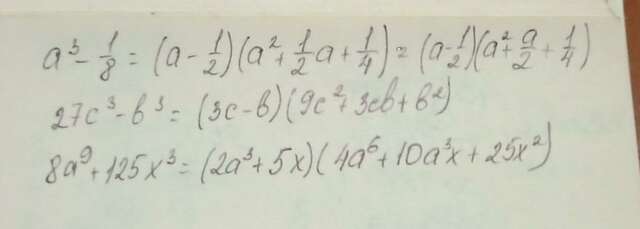 a³ - 1/8 = (a - 1/2)(a² + 1/2 a + 1/4) = (a - 1/2)(a² + a/2 + 1/4)
27c³ - b³ = (3c - b)(9c² + 3cb + b²)
8a⁹ + 125x³ = (2a³ + 5x)(4a⁶ + 10a³x + 25x²)